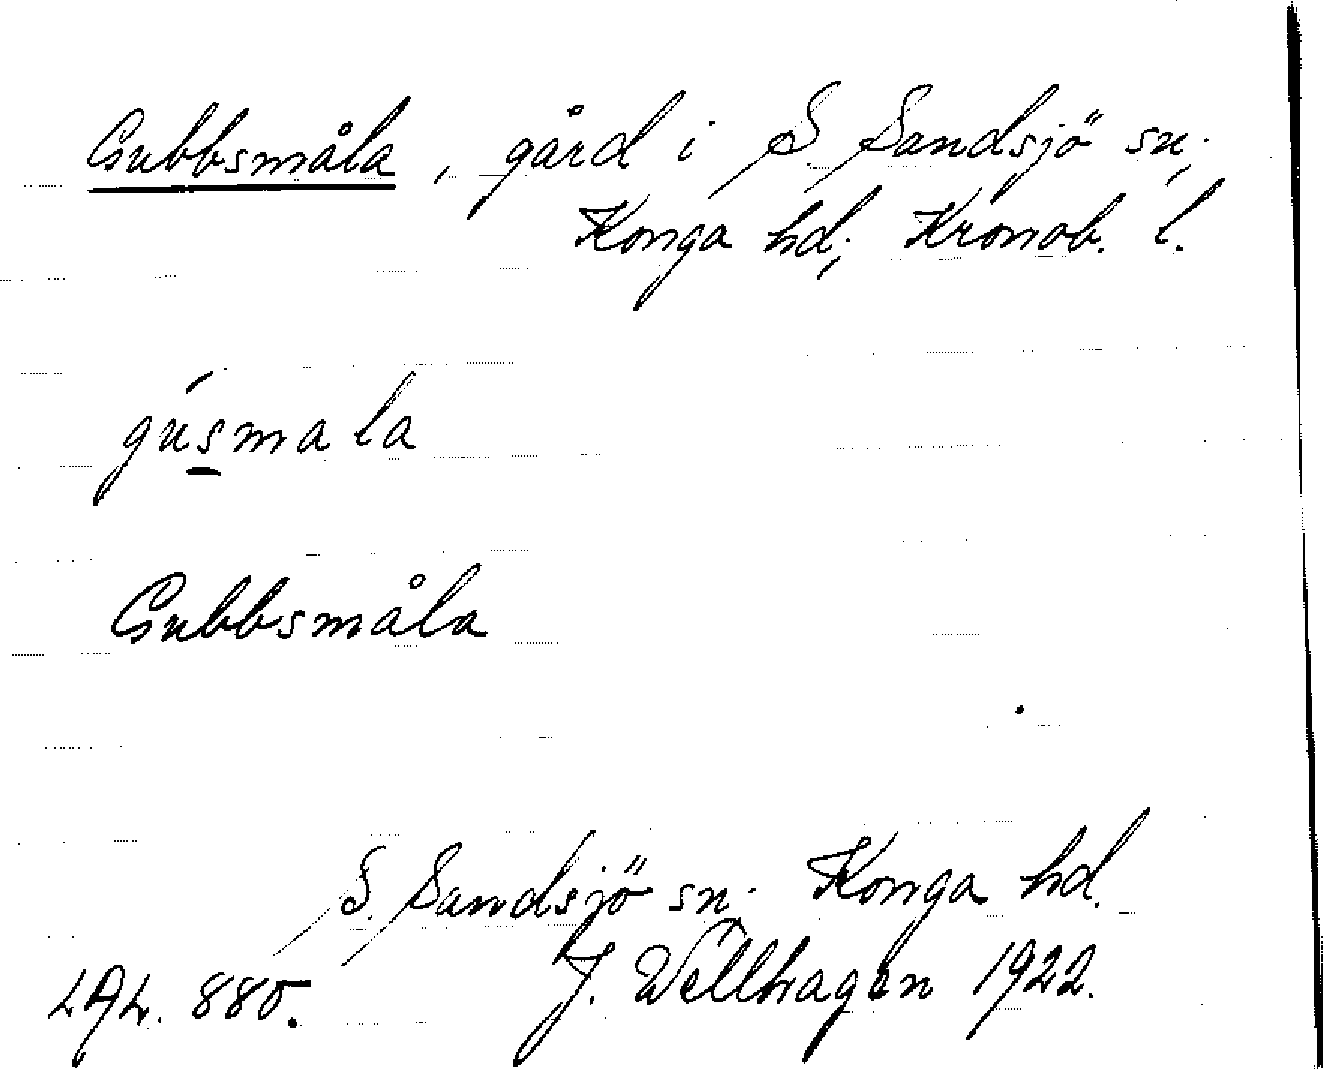 Gubbsmåla, gård i S. Sandsjö sn.,
Konga hd., Kronob. l.
gúsmala
Gubbsmåla
S. Sandsjö sn. Konga hd.
LAL. 880. J. Wellhagen 1922.